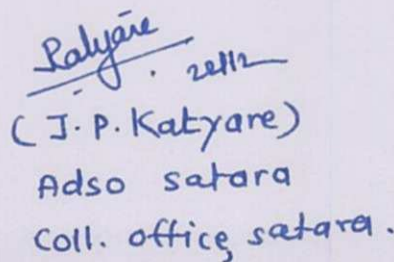 Katyare
(J.P. Katyare)
Adso satara
Coll. office, satara.